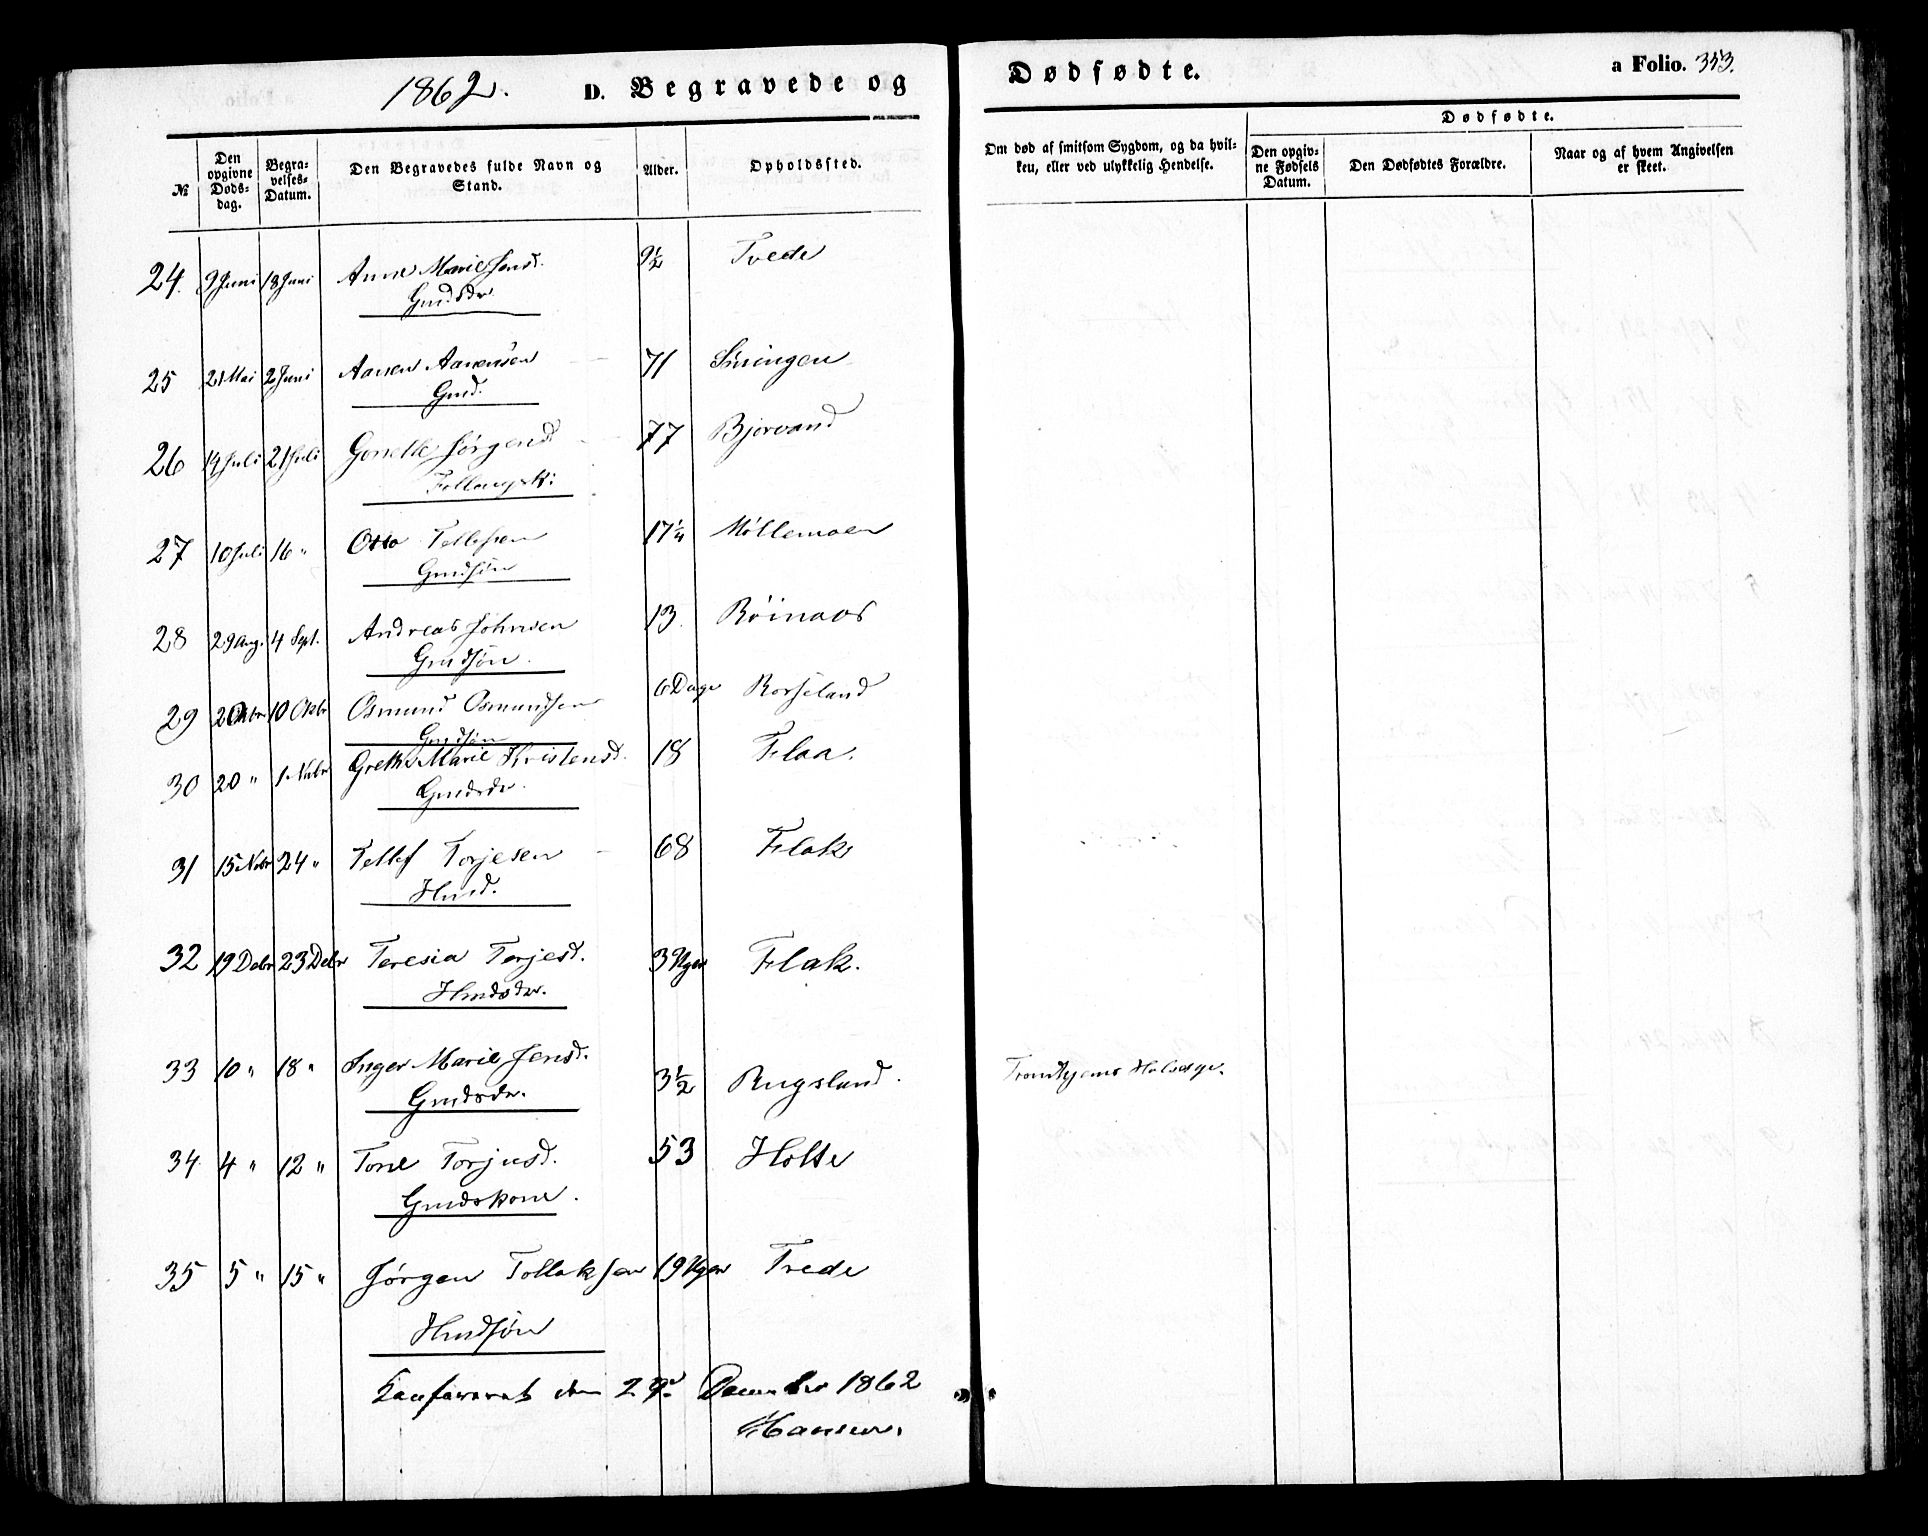 1862. D. Begravede og
Dødfødte. a Folio. 353.
№ Den opgivne Døds-dag. Begra-velses-Datum. Den Begravedes fulde Navn og Stand. Alder. Opholdssted.
Om død af smitsom Sygdom, og da hvil-ken, eller ved ulykkelig Hendelse. Dødfødte. Den opgiv-ne Fødsels Datum. Den Dødfødtes Forældre. Naar og af hvem Angivelsen er skeet.
24. 9 Juni 18 Juni Anne Marie Jensd. 9½ Tvede
Gmdsdr.
25 21 Mai 2 Juni Aanen Aanensen 71
Gmd.
26 14 Juli 21 Juli Jørgensd 77 Bjorvand
27 10 Juli 16 " Otto Tellefsen 17¼ Møllemoen
Gmdsøn
28 29 Aug. 4 Sept. Andreas Johnsen 13. Röinaas
Gmdsøn.
29 2 Oktbr 10 Oktbr Osmund Osmundsen 6 Dage
Gmdsøn
30 20 " 1 Novbr Grethe Marie Kristensd. 18 Flaa.
Gmdsdr.
31 15 Novbr 24 " Tellef Torjesen 68 Flak
Hmd.
32 19 Debr 23 Debr Teresia Torjesd. 3 Uger Flak.
Hmdsdr.
33 10 " 18 " Inger Marie Jensd. 3½ Rugsland. Halssyge.
Gmdsdr.
34 4 " 12 " Tone Torjusd. 53 Holte
Gmdskone.
35 5 " 15 " Jørgen Tollaksen 19 Uger Tvede
Hmdsøn
Konfereret den December 1862
Hansen.